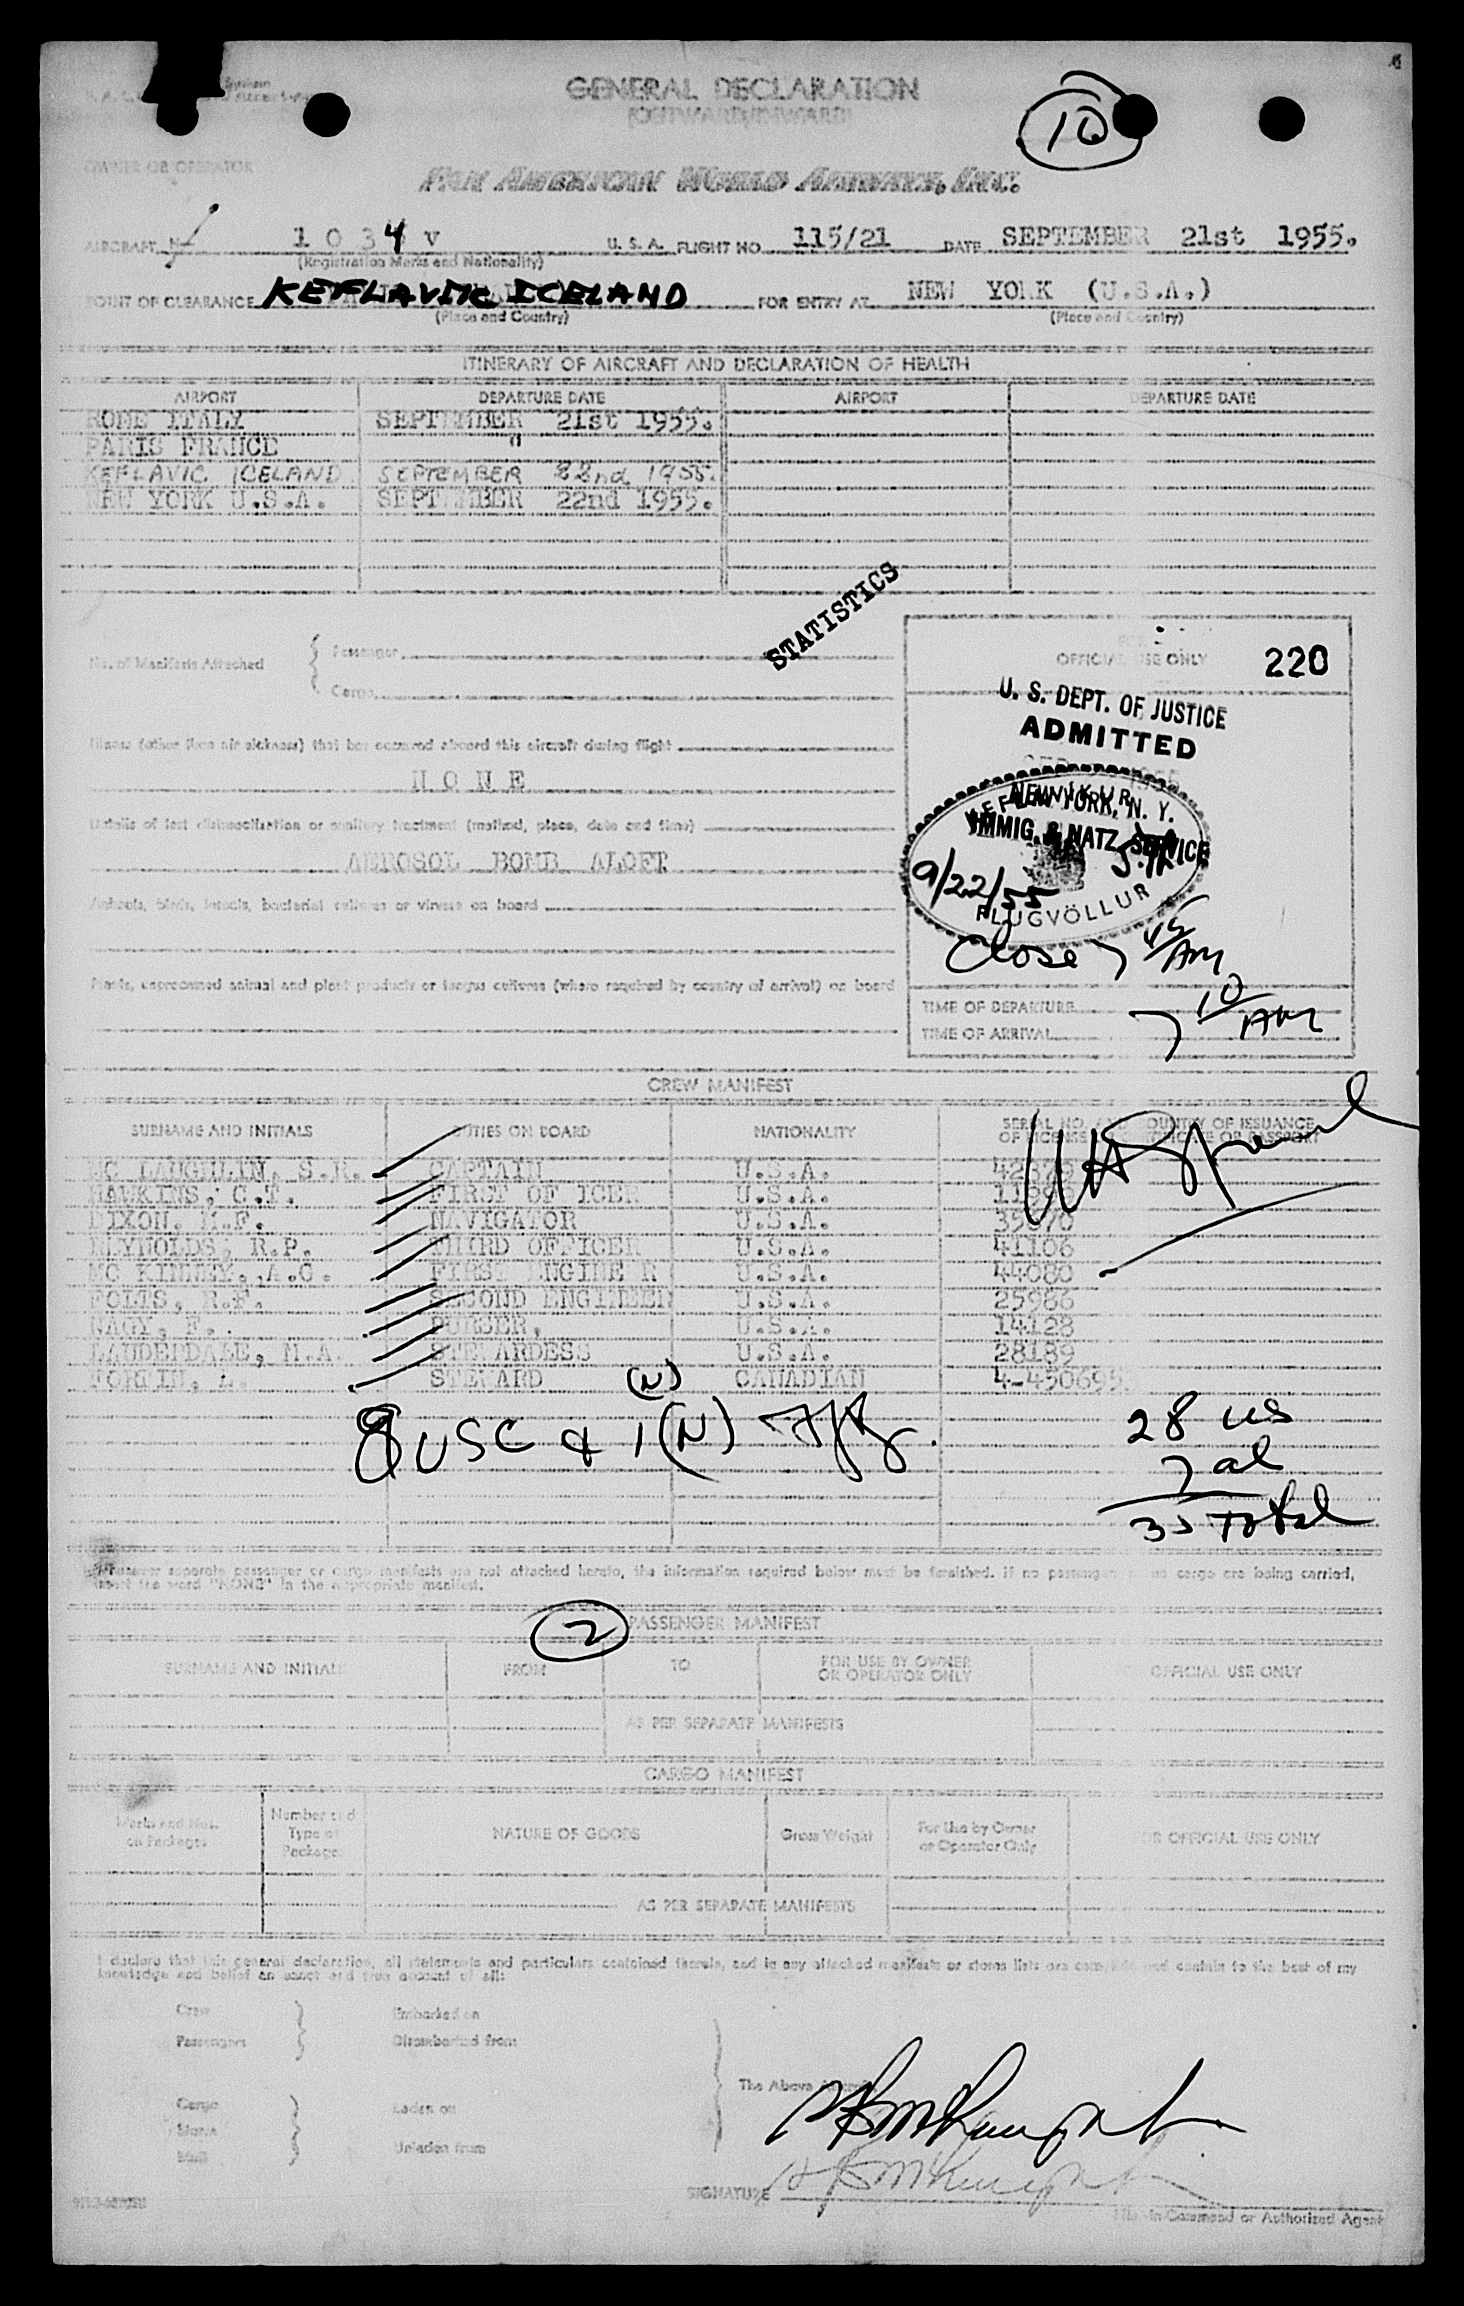 GENERAL DECLARATION
(OUTWARD/INWARD)
10
OWNER OR OPERATOR
PAN AMERICAN WORLD AIRWAYS, INC.
AIRCRAFT N 1034V U. S. A. FLIGHT NO. 115/21 DATE SEPTEMBER 21st 1955.
(Registration Marks and Nationality)
POINT OF CLEARANCE KEFLAVIK ICELAND FOR ENTRY AT NEW YORK (U.S.A.)
(Place and Country) (Place and Country)
ITINERARY OF AIRCRAFT AND DECLARATION OF HEALTH
AIRPORT DEPARTURE DATE AIRPORT DEPARTURE DATE
ROME ITALY SEPTEMBER 21st 1955.
PARIS FRANCE "
KEFLAVIC ICELAND SEPTEMBER 22nd 1955.
NEW YORK U.S.A. SEPTEMBER 22nd 1955.
STATISTICS
No. of Manifests Attached { Passenger
Cargo
OFFICIAL USE ONLY 220
U. S. DEPT. OF JUSTICE
ADMITTED
NEW YORK, N. Y.
IMMIG. & NATZ. SERVICE
9/22/55
FLUGVÖLLUR
Close 7 45 AM
Illness (other than air sickness) that has occurred aboard this aircraft during flight
NONE
Details of last disinsectization or sanitary treatment (method, place, date and time)
AEROSOL BOMB ALOFT
Animals, birds, insects, bacterial cultures or viruses on board
Plants, unprocessed animal and plant products or fungus cultures (where required by country of arrival) on board
TIME OF DEPARTURE
TIME OF ARRIVAL 7 10 AM
CREW MANIFEST
SURNAME AND INITIALS DUTIES ON BOARD NATIONALITY SERIAL NO. AND COUNTRY OF ISSUANCE
OF LICENSE CERTIFICATE OR PASSPORT
MC LAUGHLIN, S.R. CAPTAIN U.S.A.
HAWKINS, C.T. FIRST OFFICER U.S.A.
DIXON, M.F. NAVIGATOR U.S.A.
REYNOLDS, R.P. THIRD OFFICER U.S.A. 41106
MC KINNEY, A.G. FIRST ENGINEER U.S.A. 44080
FOLTS, R.F. SECOND ENGINEER U.S.A. 25986
NAGY, F. PURSER, U.S.A. 14128
LAUDERDALE, M.A. STEWARDESS U.S.A. 28189
STEWARD (N) CANADIAN 4-450695
8 USC & 1 (N)
28 us
7 al
35 Total
Whenever separate passenger or cargo manifests are not attached hereto, the information required below must be furnished. If no passengers or no cargo are being carried,
insert the word "NONE" in the appropriate manifest.
2 PASSENGER MANIFEST
SURNAME AND INITIALS FROM TO FOR USE BY OWNER
OR OPERATOR ONLY OFFICIAL USE ONLY
AS PER SEPARATE MANIFESTS
CARGO MANIFEST
Marks and Nos.
on Packages Number and
Type of
Packages NATURE OF GOODS Gross Weight For Use by Owner
or Operator Only FOR OFFICIAL USE ONLY
AS PER SEPARATE MANIFESTS
I declare that this general declaration, all statements and particulars contained therein, and in any attached manifests or stores lists are complete and contain to the best of my
knowledge and belief an exact and true account of all:
Crew } Embarked on
Passengers Disembarked from
The Above Aircraft
Cargo } Laden on
Stores
Mail Unladen from
SIGNATURE
Pilot-in-Command or Authorized Agent